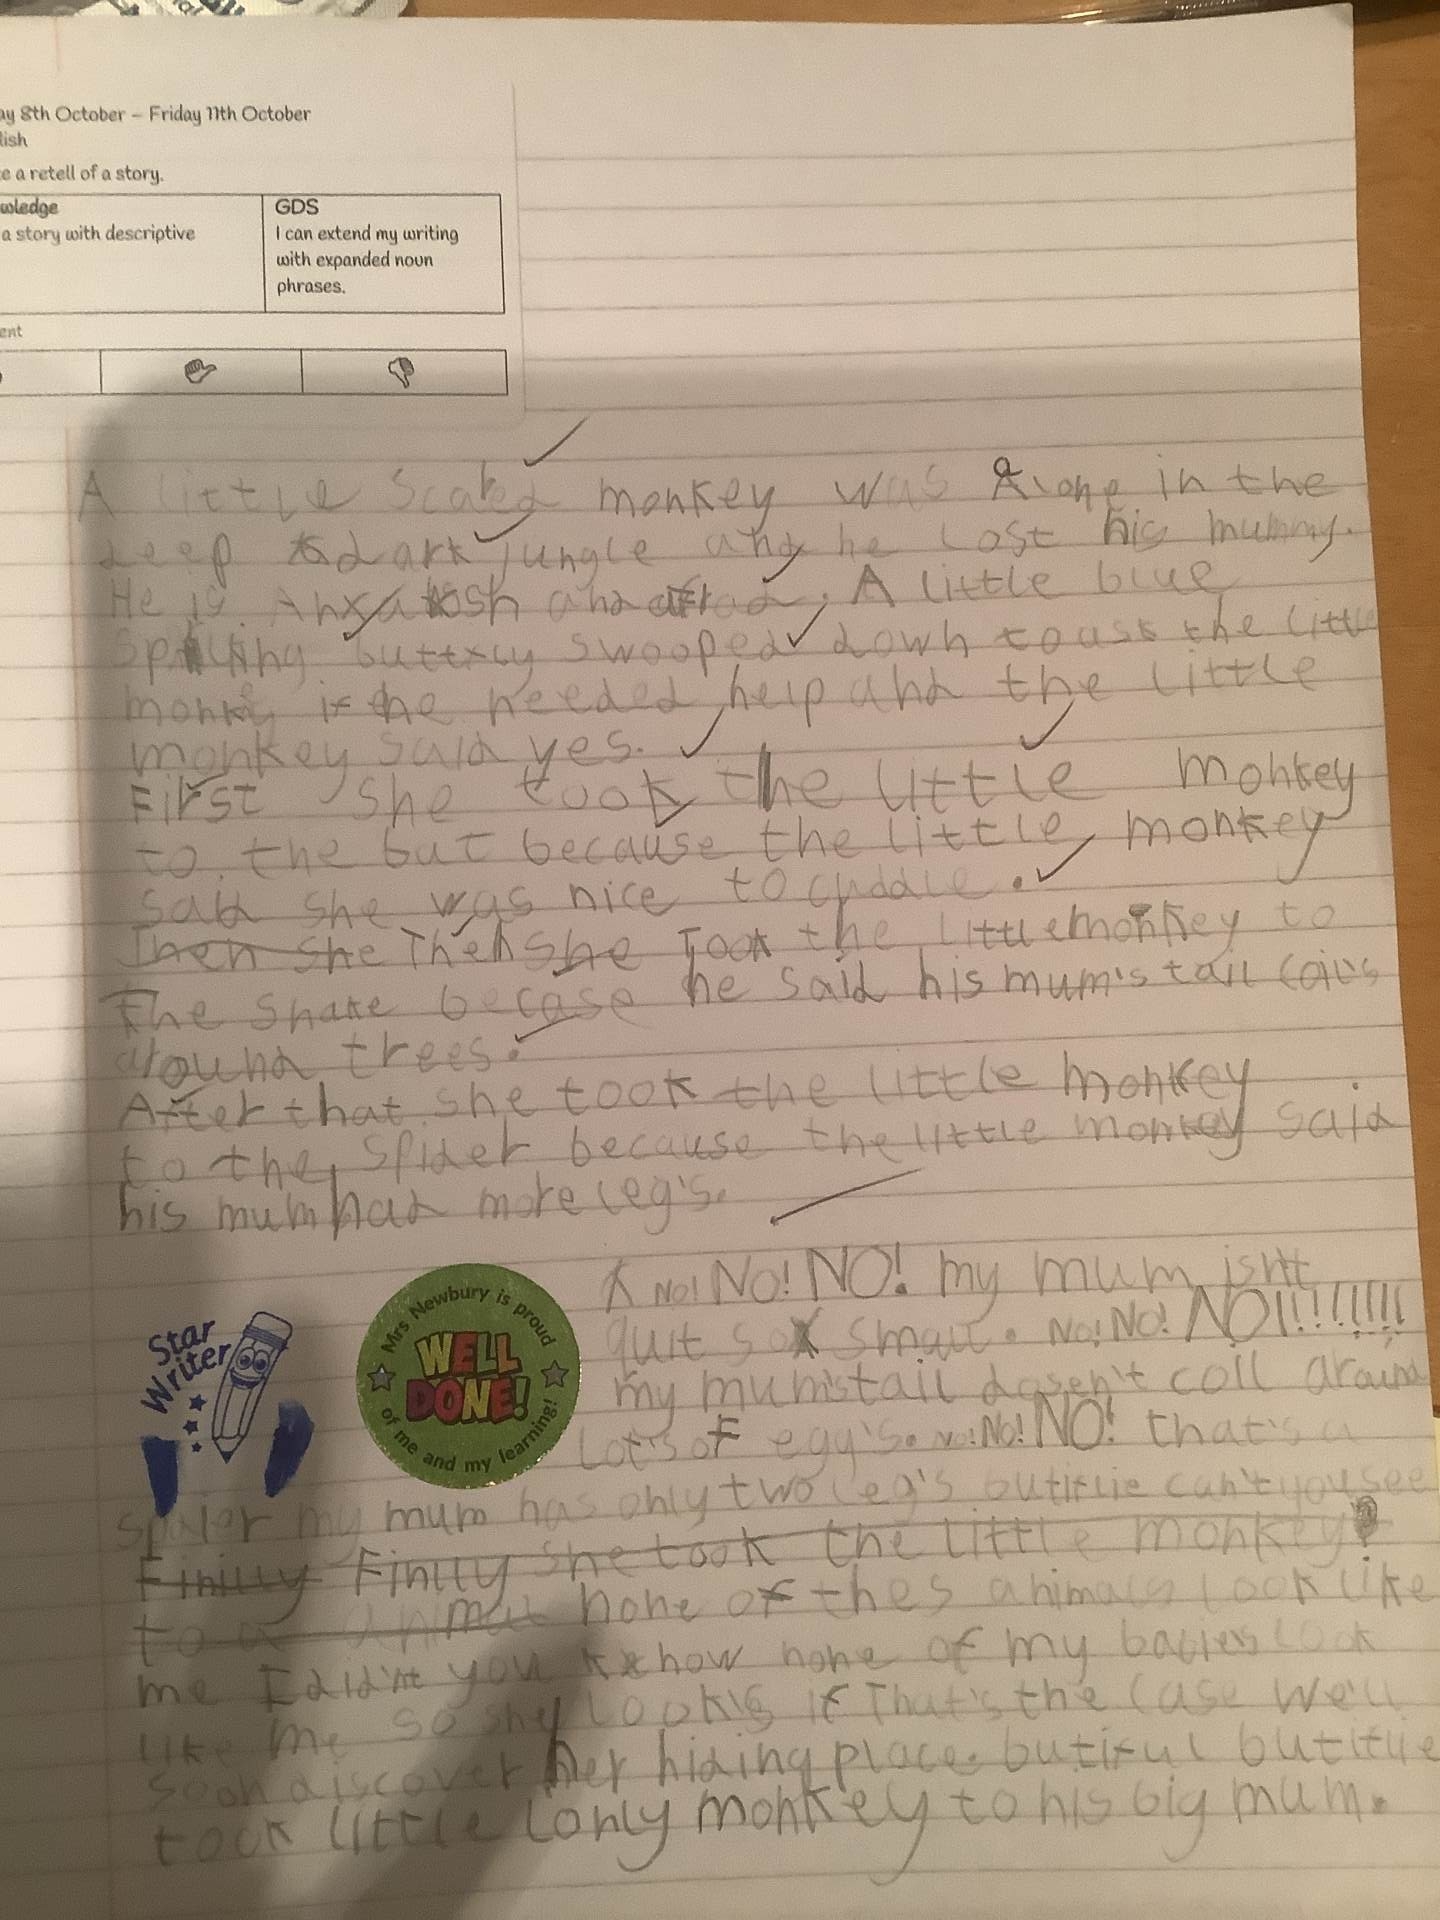 ay 8th October – Friday 11th October
lish
e a retell of a story.
wledge
a story with descriptive
GDS
I can extend my writing
with expanded noun
phrases.
ent
A little scared monkey was Alone in the
deep dark jungle and he lost his mummy.
He is and . A little blue
swooped down to ask the little
monky if the needed help and the little
monkey said yes.
First she took the little monkey
to the but because the little monkey
said she was nice to cuddle.
Then she Then she Took the little monkey to
The snake becase he said his mum's tail coil's
around trees.
After that she took the little monkey
to the spider because the little monkey said
his mum had more leg's.
No! No! NO! my mum isn't
quit so small. No! No! NO!!!!!!!!
my mum's tail dosen't coil around
Lot's of egg's. No! No! NO! that's a
my mum has only two leg's butiflie can't you see
Finilly Finlly she took the little monkey
to a animal none of thes animals look like
me I did'nt you know none of my look
like me so she look's if That's the case we'll
soon discover her hiding place. butiful butiflie
took little lonly monkey to his big mum.
Star
Writer
Mrs Newbury is proud
WELL
DONE!
of me and my learning!